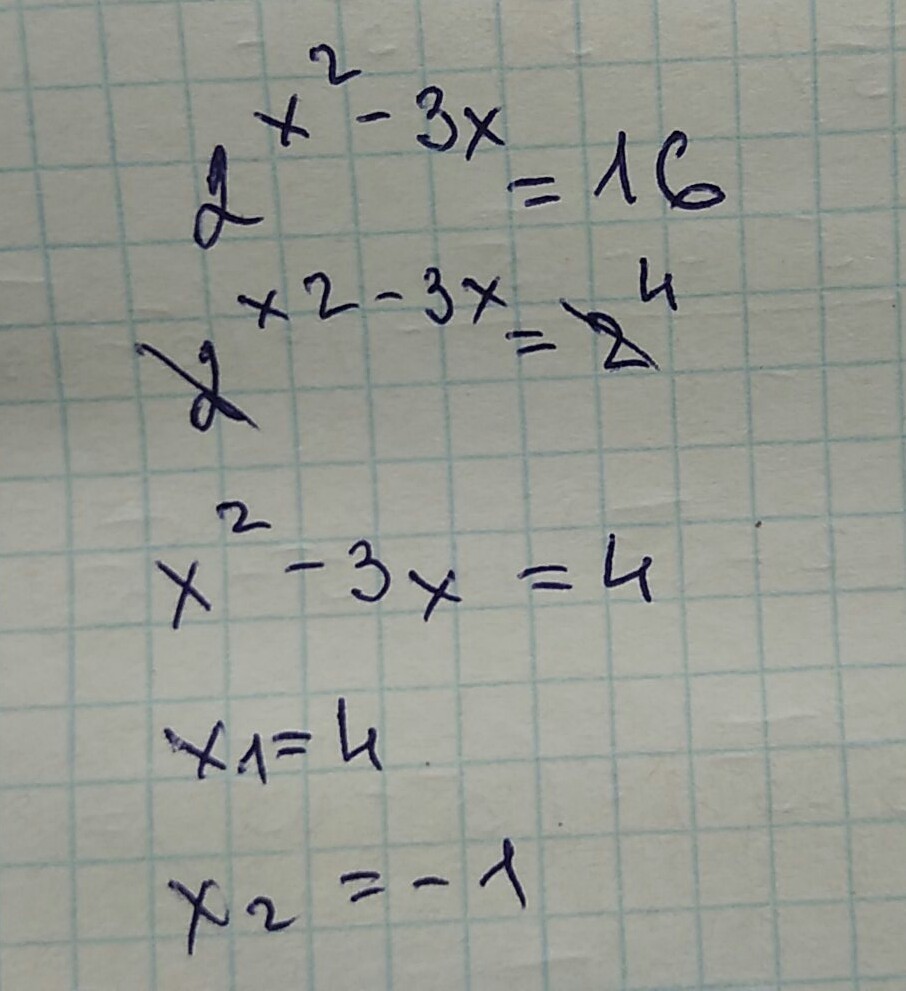 2^{x^2 - 3x} = 16
2^{x2 - 3x} = 2^4
x^2 - 3x = 4
x1 = 4
x2 = -1